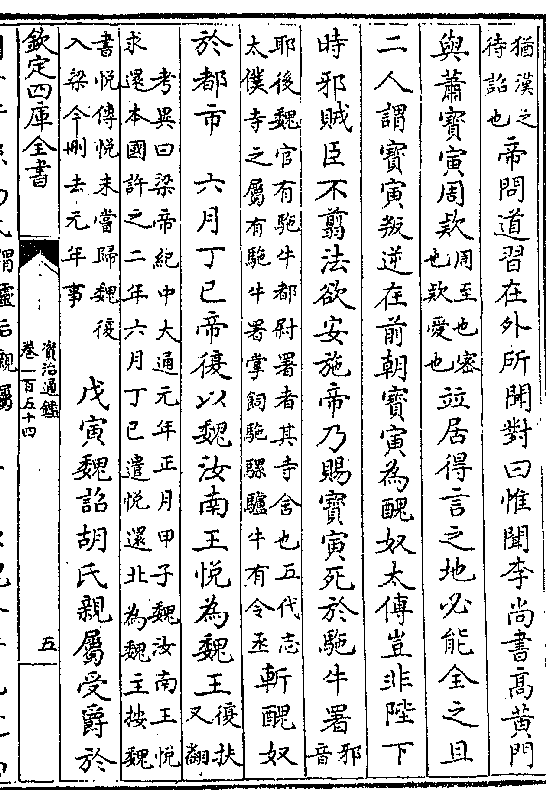 猶漢之
待詔也
帝問道習在外所聞對曰惟聞李尚書高黃門
與蕭寳寅周款
周至也宻
也款愛也
並居得言之地必能全之且
二人謂寳寅叛逆在前朝寳寅為醜奴太傅豈非陛下
時邪賊臣不翦法欲安施帝乃賜寳寅死於駞牛署
邪
音
耶後魏官有駞牛都尉署者其寺舍也五代志
太僕寺之屬有駞牛署掌飼駞騾驢牛有令丞
斬醜奴
於都市 六月丁巳帝復以魏汝南王悅為魏王
復扶
又翻
考異曰梁帝紀中大通元年正月甲子魏汝南王悅
求還本國許之二年六月丁巳遣悅還北為魏主按魏
書悅傳悅未嘗歸魏復
入梁今刪去元年事
戊寅魏詔胡氏親屬受爵於
欽定四庫全書
資治通鑑
卷一百五十四
五